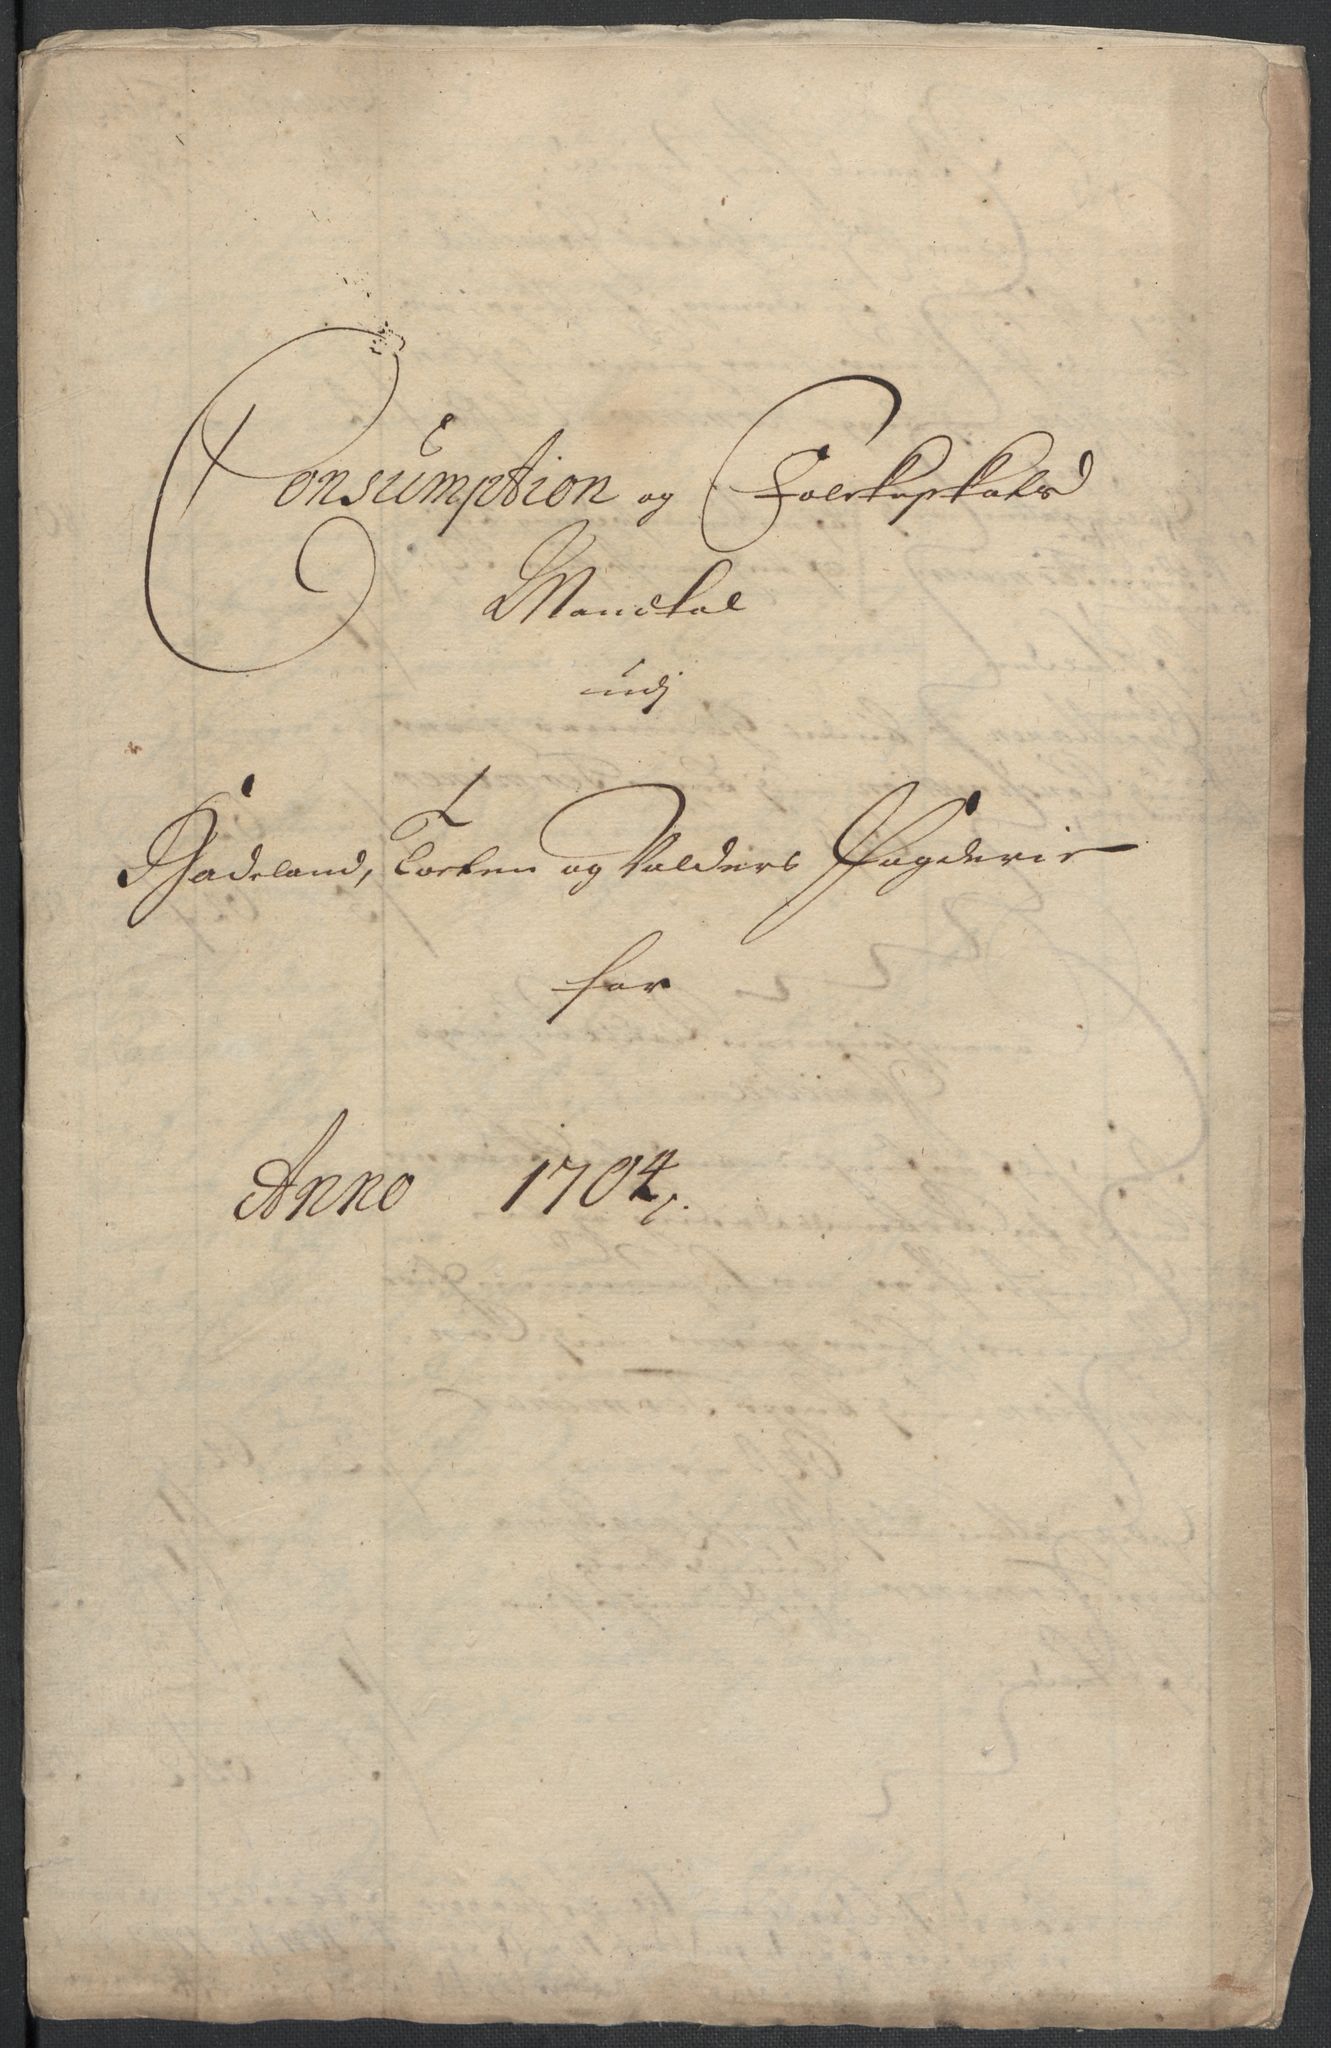 Consumption og Folckeskatts
Mandtal
udj
Hadeland, Toten og Valders Fogderie
for
Anno 1704.